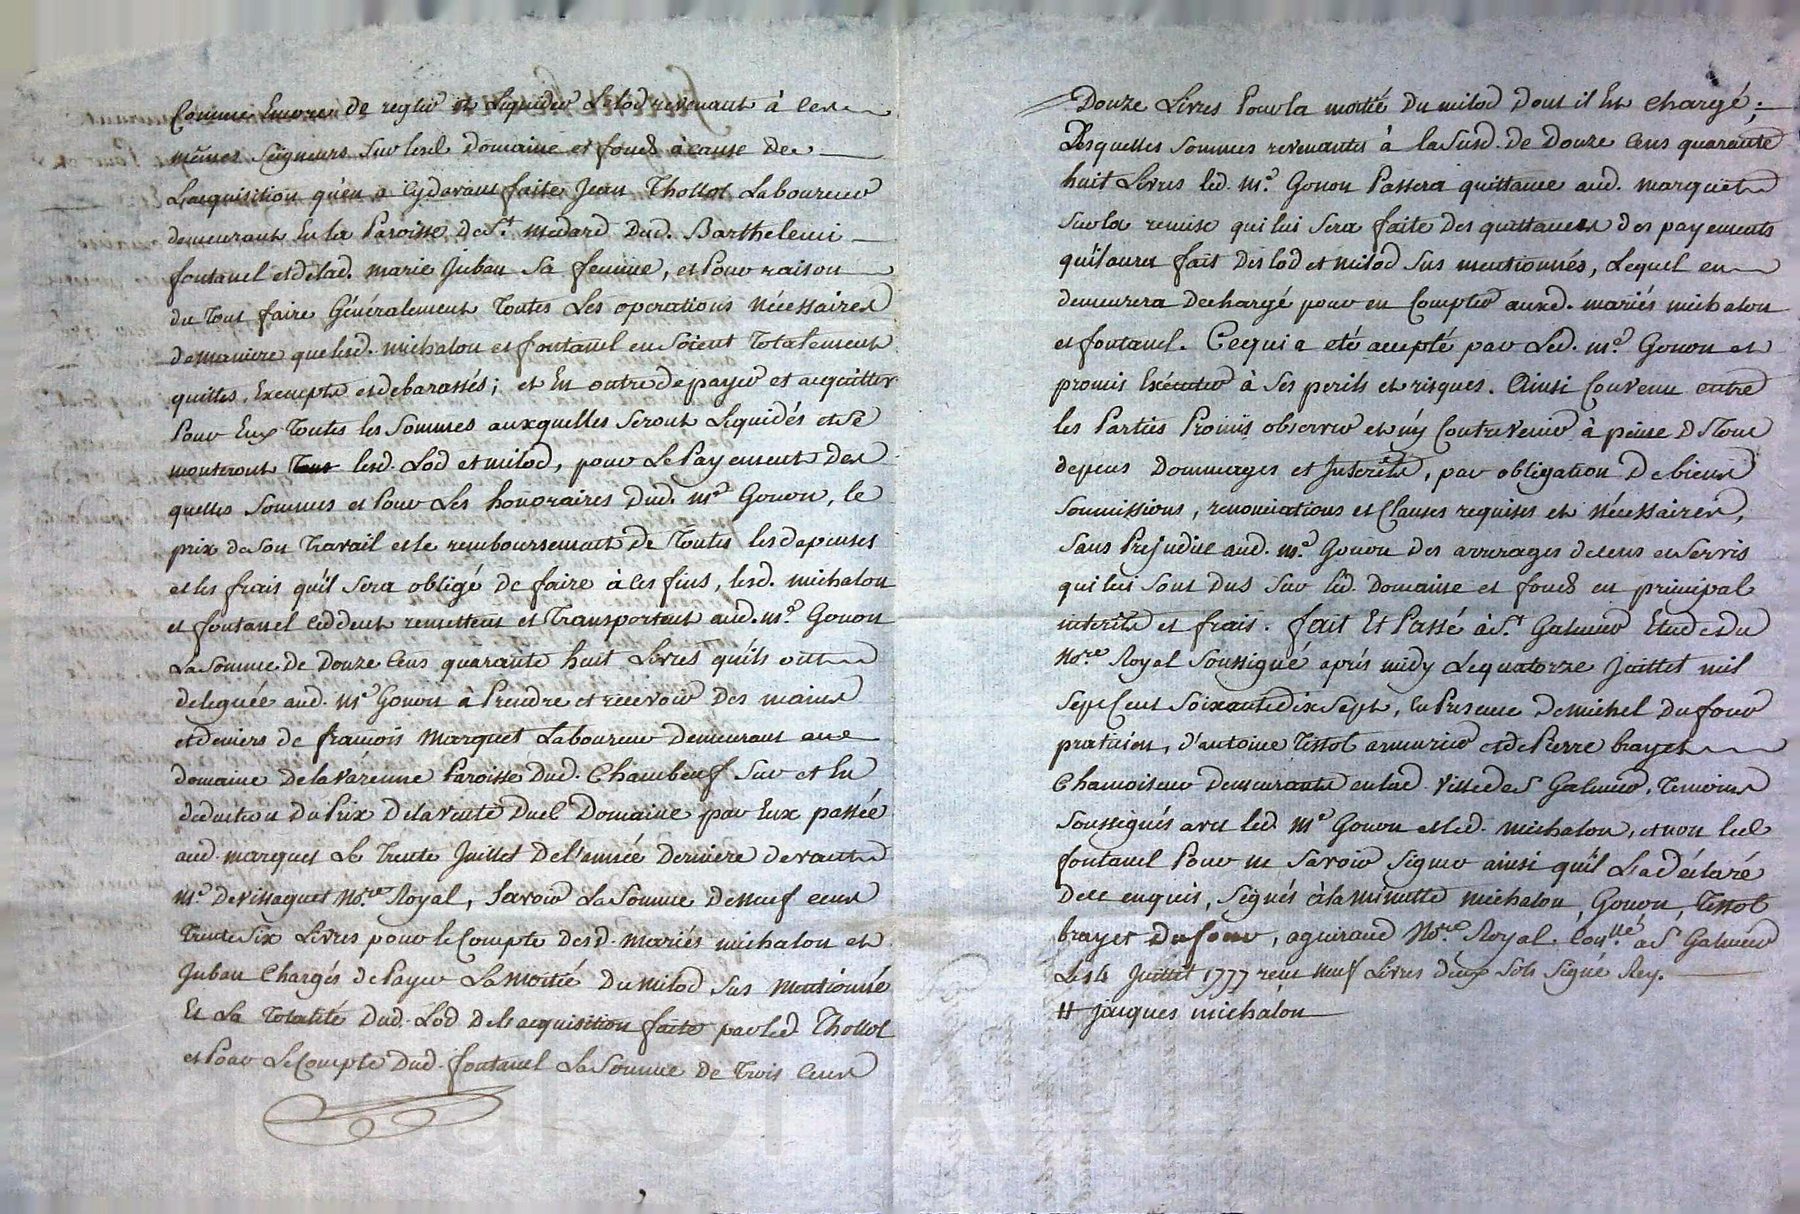 Comme Encore de regler et Liquider Le lod revenant à Ces
mêmes Seigneurs Sur lesd Domaine et fonds à cause de
L'acquisition qu'en a Cydevant faite Jean Thollot Laboureur
demeurant En la Paroisse de St. medard Dud. Barthelemi
fontanel et delad. marie Juban Sa femme, et Pour raison
du Tout faire Généralement Toutes Les operations Nécessaires
demaniere que lesd. michalon et fontanel en Soient Totalement
quittes, Exempts et debarassés; et En outre de payer et acquitter
Pour Eux Toutes les Sommes auxquelles Seront Liquidés et Se
monteront lesd. Lod et milod, pour Le Payement des
quelles Sommes et Pour Les honoraires Dud. me Gonon, le
prix deson Travail et le remboursement de Toutes les depenses
et les frais qu'il Sera obligé de faire à Ces fins, lesd. michalon
et fontanel Ceddent remettent et Transportent aud. me Gonon
La Somme de Douze Cens quarante huit Livres qu'ils ont
deleguée aud. me Gonon à Prendre et recevoir Des mains
et deniers de françois Marquet Laboureur Demeurant au
domaine Delavarenne Paroisse Dud. Chambeuf Sur et En
deduction Du Prix Delavente Duel Domaine par Eux passée
aud. marquet Le Trente Juillet De l'année Derniere devant
Me. Devissaguet No.re Royal, Savoir La Somme De neuf cens
Trente Six Livres pour le Compte desd. mariés michalon et
Juban Chargés de Payer La moitié Du milod Sus Mentionné
Et La Totalité Dud. Lod De l'acquisition faite par led Thollot
et Pour Le Compte Dud. fontanel La Somme De Trois Cens
Douze Livres Pour la moitié Du milod Dont il Est Chargé;
Desquelles Sommes revenantes à la Susd. de Douze Cens quarante
huit Livres led. me. Gonon Passera quittance aud. marquet
Sur la remise qui lui Sera faite Des quittances des payements
qu'il aura fait Des lod et milod Sus mentionnés, Lequel en
demeurera Dechargé pour en Compter auxd. mariés michalon
et fontanel. Ce qui a eté accepté par Led. me. Gonon et
promis Exécuter à Ses perils et risques. Ainsi Convenu entre
les Parties Promis observer et n'y Contrevenir à peine De Tous
depens Dommages et Interêts, par obligation De biens
Soumissions, renonciations et Clauses requises et Nécessaires,
Sans Prejudice aud. me. Gonon Des arrerages de cens et Servis
qui lui Sont Dus Sur led. Domaine et fonds en principal
interêts et frais. fait Et Passé à St. Galmier Etude du
No.re Royal Soussigné après midy Le quatorze Juillet mil
Sept Cent Soixante dix Sept, En Presence De michel Dufour
praticien, d'antoine Tissot armurier et de Pierre brayet
Chamoiseur Demeurants en lad. Ville de St Galmier, Temoins
Soussignés avec led. Me Gonon et led. michalon, et non led
fontanel Pour ne Savoir Signer ainsi qu'il L'a déclaré
De ce enquis, Signés à la minutte michalon, Gonon, Tissot
brayet Dufour, aguiraud No.re Royal. Con.llé à St Galmier
Le 14 Juillet 1777 reçu Neuf Livres dix Sols Signé Rey.
# jacques michalon